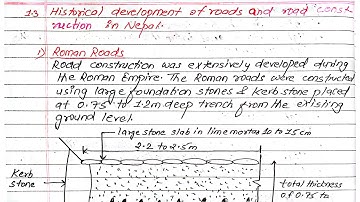 1.3 Historical development of roads and road const
ruction in Nepal.
i) Roman Roads
Road construction was extensively developed during
the Roman Empire. The Roman roads were constructed
using large foundation stones & kerb stone placed
at 0.75 to 1.2m deep trench from the existing
ground level.
large stone slab in lime mortar 10 to 15cm
2.2 to 2.5m
Kerb
stone
total thickness
of 0.75 to